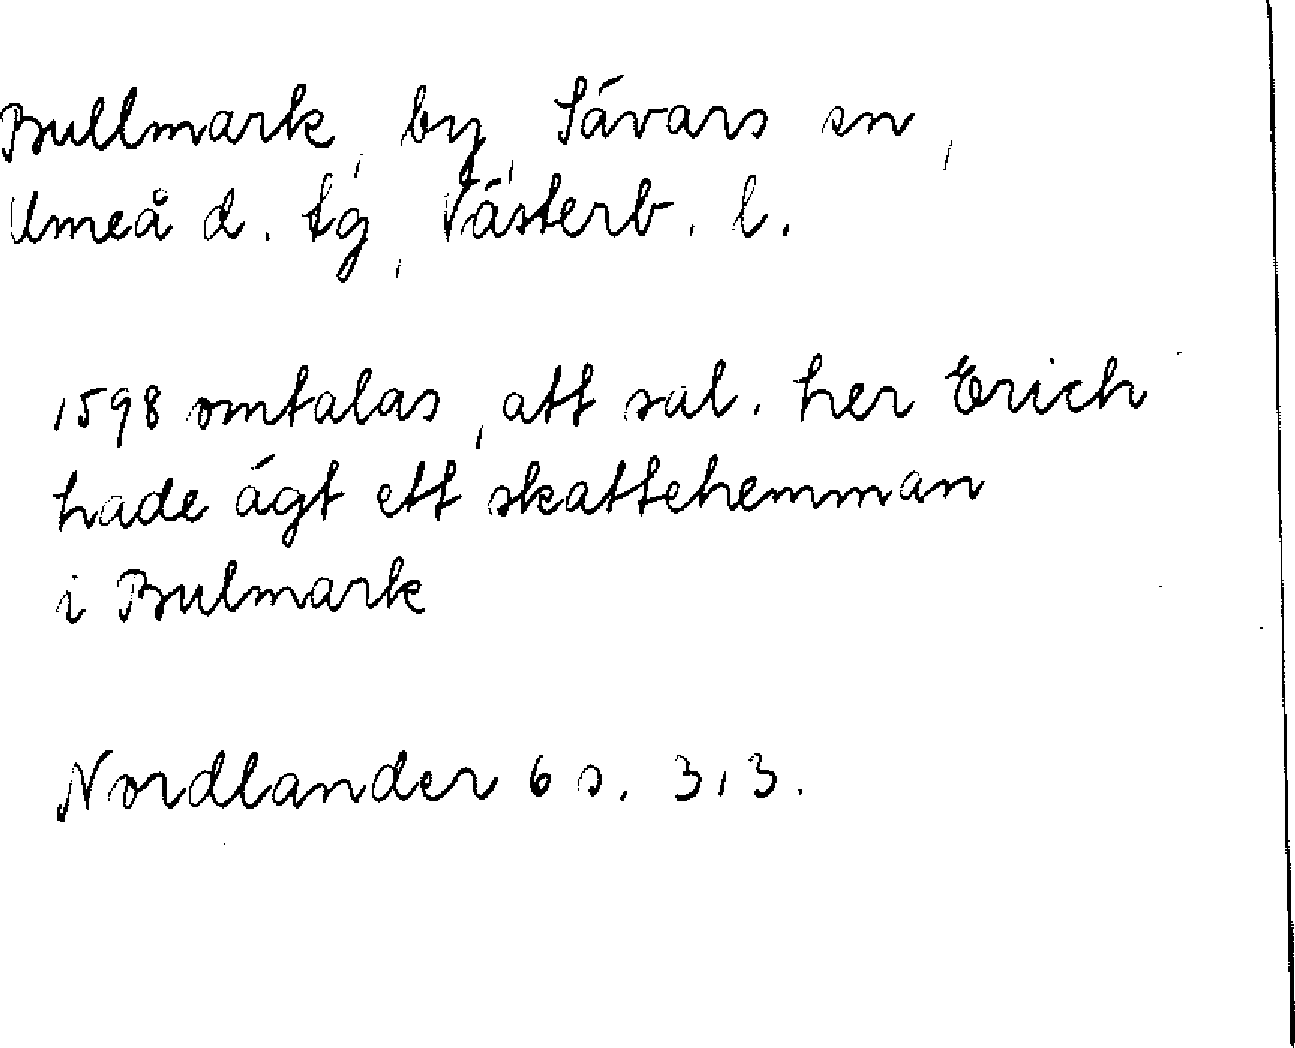 Bullmark, by, Sävars sn,
Umeå d. tg, Västerb. l.
1598 omtalas, att sal. her Erich
hade ägt ett skattehemman
i Bulmark
Nordlander 6 s. 313.